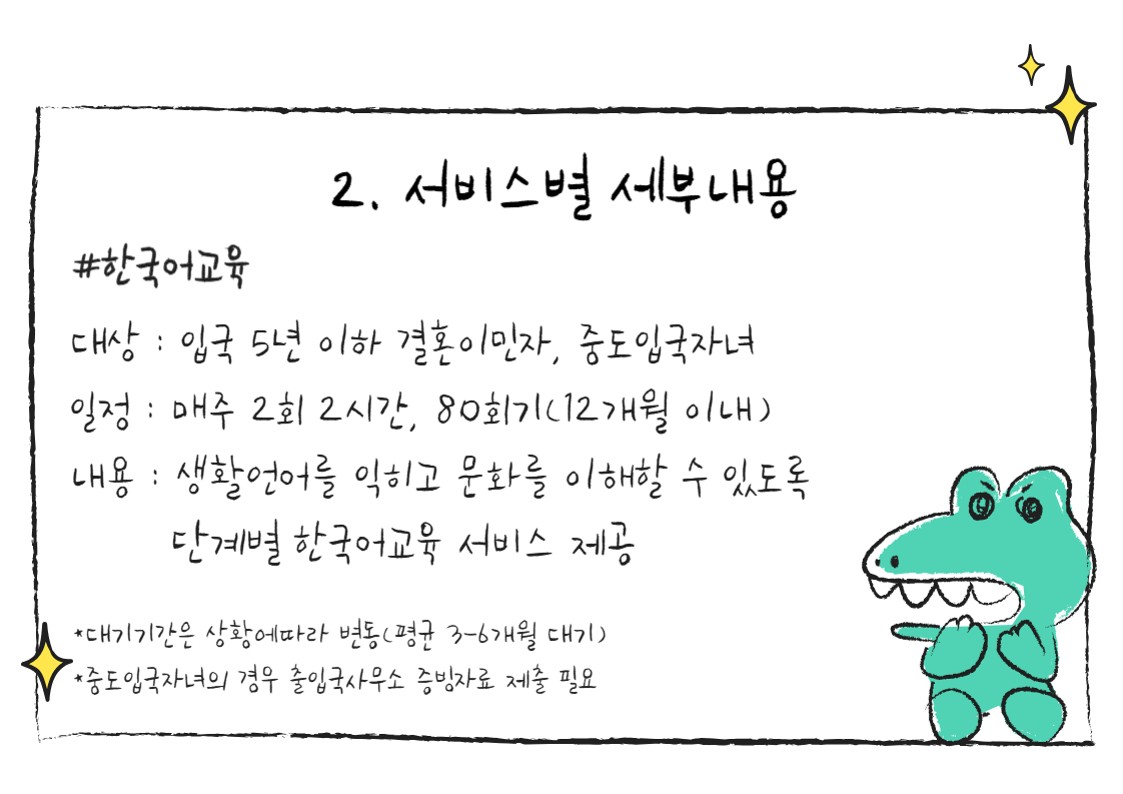 2. 서비스별 세부내용
#한국어교육
대상 : 입국 5년 이하 결혼이민자, 중도입국자녀
일정 : 매주 2회 2시간, 80회기(12개월 이내)
내용 : 생활언어를 익히고 문화를 이해할 수 있도록
단계별 한국어교육 서비스 제공
*대기기간은 상황에따라 변동(평균 3-6개월 대기)
*중도입국자녀의 경우 출입국사무소 증빙자료 제출 필요